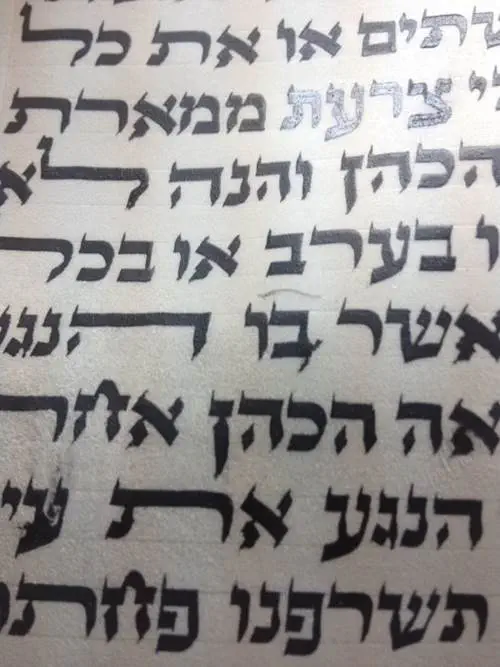 שתים או את כל
י צרעת ממארת
הכהן והנה לא
ו בערב או בכל
אשר בו הנגע
אה הכהן אחר
הנגע את עי
תשרפנו פחת